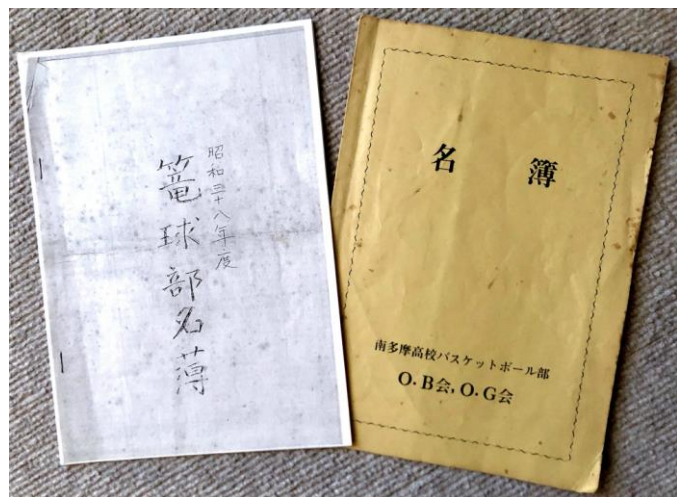 昭和三十八年度
篭球部名薄
名 簿
南多摩高校バスケットボール部
O.B会,O.G会